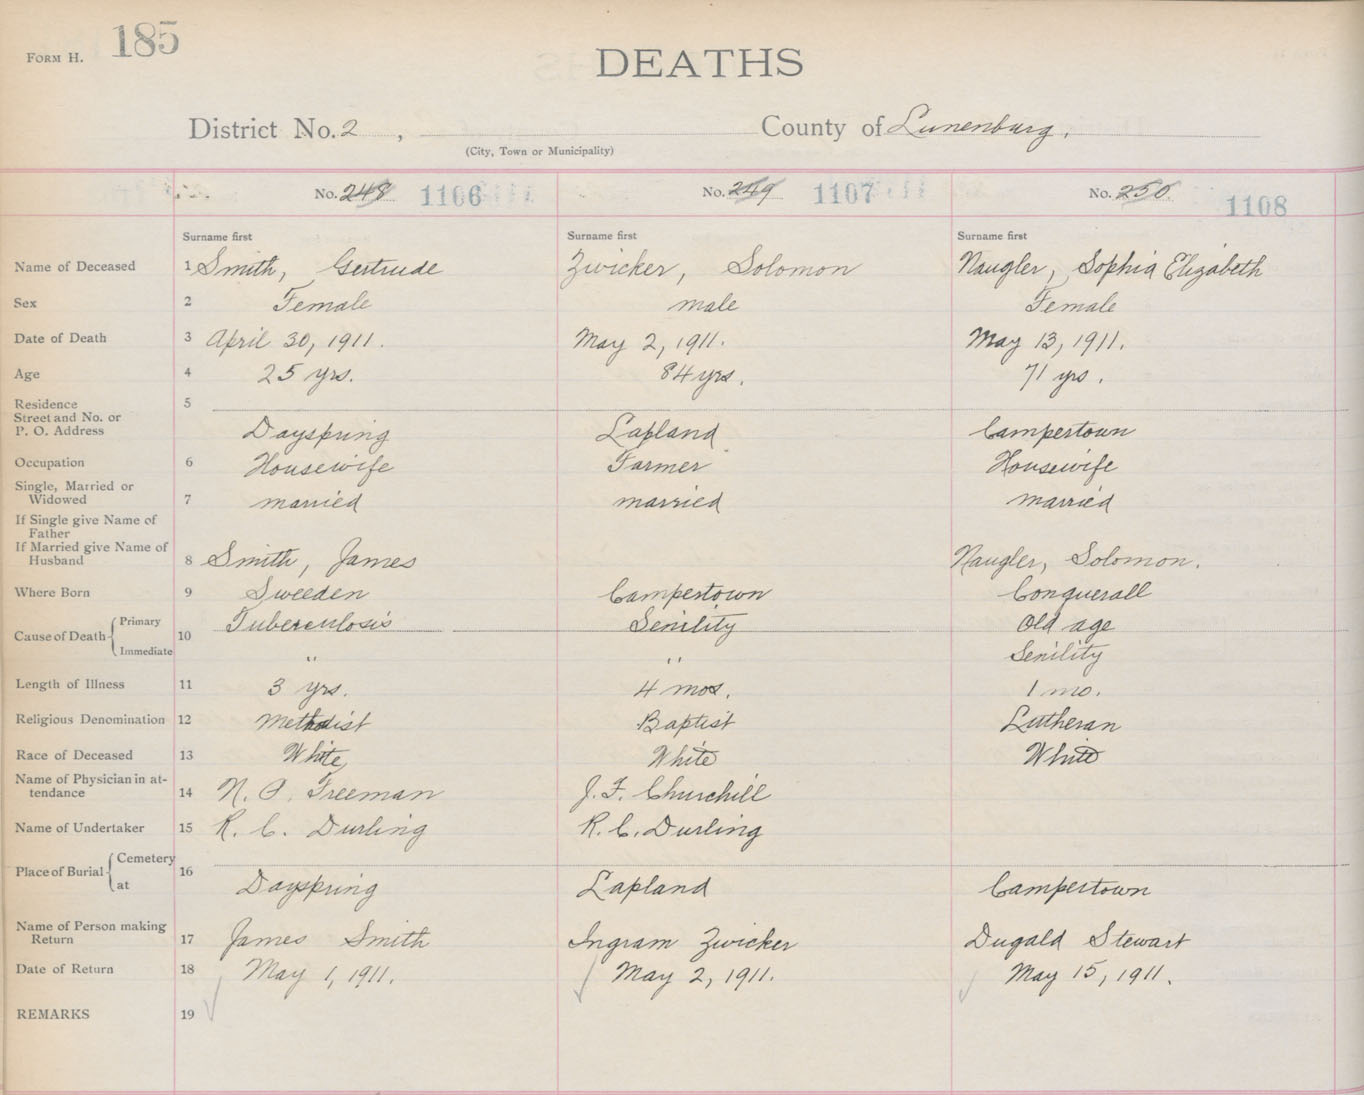 FORM H. 185
DEATHS
District No. 2 , County of Lunenburg.
(City, Town or Municipality)
No. 248 1106 No. 249 1107 No. 250 1108
Surname first Surname first Surname first
Name of Deceased 1 Smith, Gertrude Zwicker, Solomon Naugler, Sophia Elizabeth
Sex 2 Female male Female
Date of Death 3 April 30, 1911. May 2, 1911. May 13, 1911.
Age 4 25 yrs. 84 yrs. 71 yrs.
Residence 5
Street and No. or
P. O. Address Dayspring Lapland Campertown
Occupation 6 Housewife Farmer Housewife
Single, Married or
Widowed 7 married married married
If Single give Name of
Father
If Married give Name of
Husband 8 Smith, James Naugler, Solomon.
Where Born 9 Sweeden Campertown Conquerall
Cause of Death { Primary 10 Tuberculosis Senility Old age
Immediate " " Senility
Length of Illness 11 3 yrs. 4 mos. 1 mo.
Religious Denomination 12 Methodist Baptist Lutheran
Race of Deceased 13 White White White
Name of Physician in at-
tendance 14 N. P. Freeman J. F. Churchill
Name of Undertaker 15 R. C. Durling R. C. Durling
Place of Burial { Cemetery 16
at Dayspring Lapland Campertown
Name of Person making
Return 17 James Smith Ingram Zwicker Dugald Stewart
Date of Return 18 May 1, 1911. May 2, 1911. May 15, 1911.
REMARKS 19